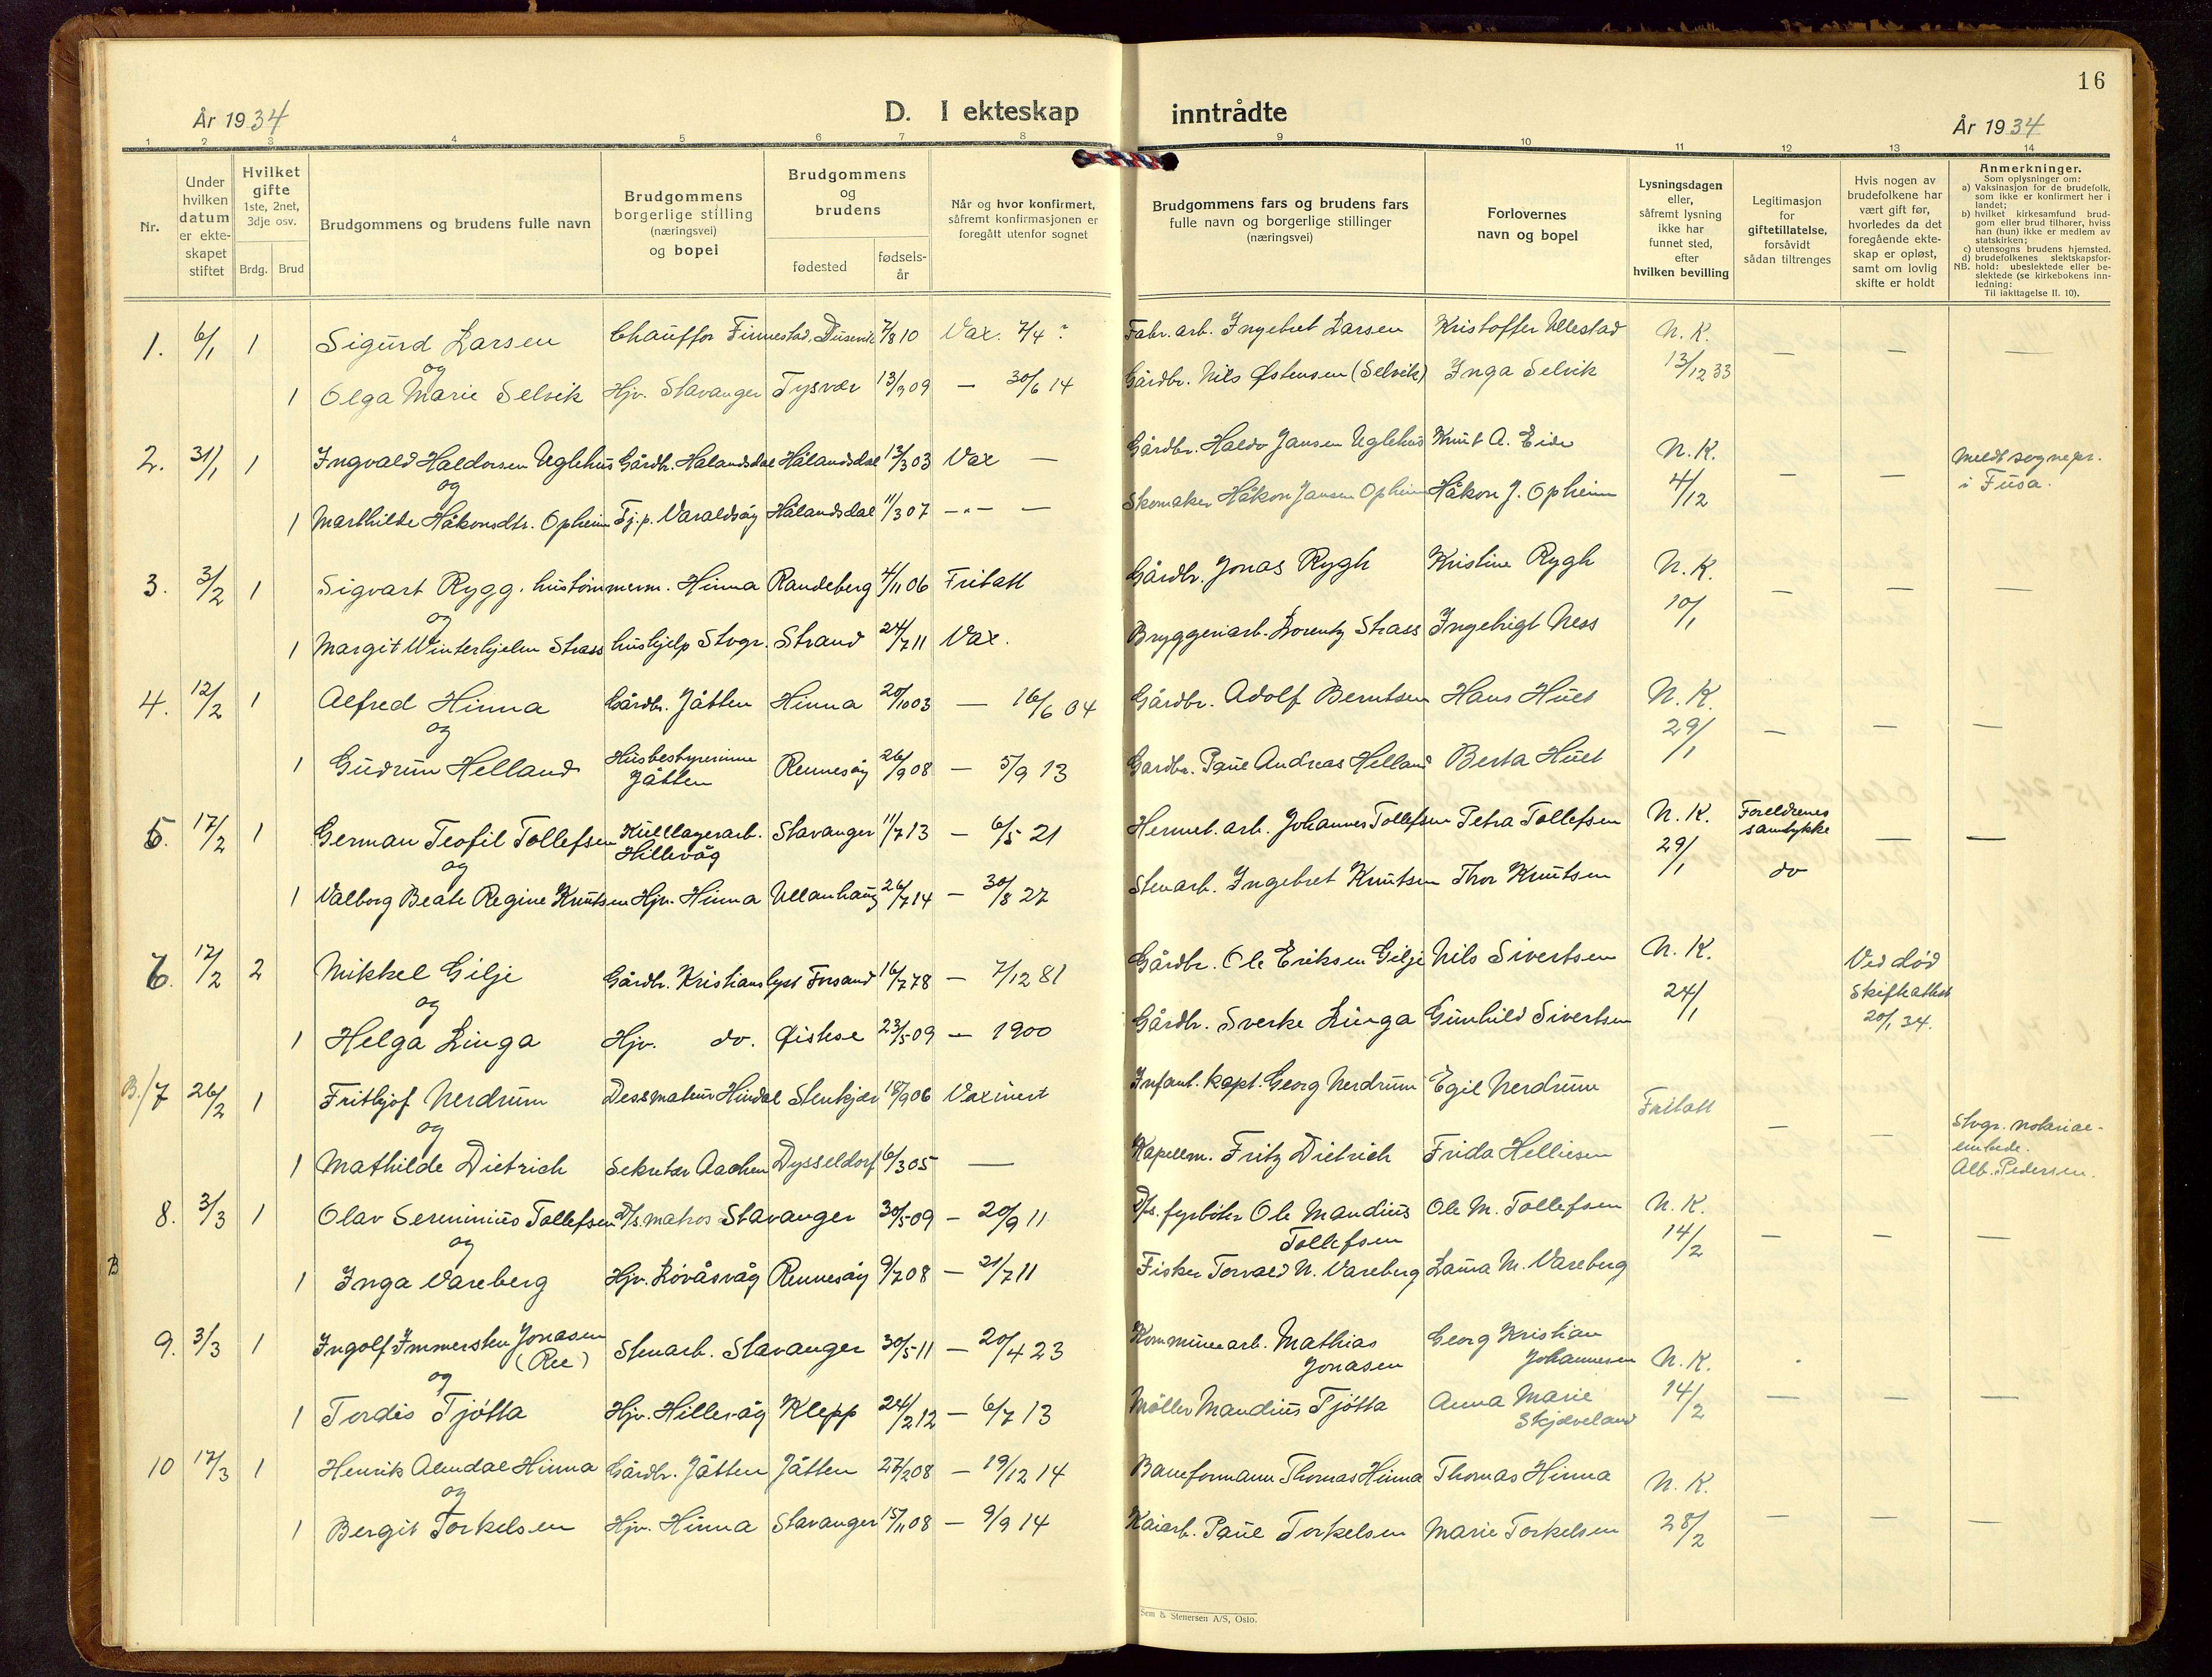 16
År 1934
D. I ekteskap inntrådte
År 1934
1 2 3 4 5 6 7 8 9 10 11 12 13 14
Nr.
Under hvilken datum er ekteskapet stiftet
Hvilket gifte 1ste, 2net, 3dje osv.
Brdg. Brud
Brudgommens og brudens fulle navn
Brudgommens borgerlige stilling (næringsvei) og bopel
Brudgommens og brudens
fødested
fødsels-år
Når og hvor konfirmert, såfremt konfirmasjonen er foregått utenfor sognet
Brudgommens fars og brudens fars fulle navn og borgerlige stillinger (næringsvei)
Forlovernes navn og bopel
Lysningsdagen eller, såfremt lysning ikke har funnet sted, efter hvilken bevilling
Legitimasjon for giftetillatelse, forsåvidt sådan tiltrenges
Hvis nogen av brudefolkene har vært gift før, hvorledes da det foregående ekteskap er opløst, samt om lovlig skifte er holdt
Anmerkninger.
Som oplysninger om:
a) Vaksinasjon for de brudefolk, som ikke er konfirmert her i landet;
b) hvilket kirkesamfund brudgom eller brud tilhører, hviss han (hun) ikke er medlem av statskirken;
c) utensogns brudens hjemsted.
d) brudefolkenes slektskapsforhold: ubeslektede eller beslektede (se kirkebokens innledning:
NB.
Til iakttagelse II. 10).
1. 6/1 1 Sigurd Larsen Chauffør Finnestad. Dusevik 7/8 10 Vax. 7/4 ? Fabr. arb. Ingebret Larsen Kristoffer Ullestad N. K. — — —
og
1 Olga Marie Selvik Hjv. Stavanger Tysvær 13/9 09 — 30/6 14 Gårdbr. Nils Østensen (Selvik) Inga Selvik 13/12 33
2. 31/1 1 Ingvald Haldorsen Uglehus Gårdbr. Hålandsdal Hålandsdal 12/3 03 Vax — Gårdbr. Haldo Jansen Uglehus Knut A. Eide N. K. — — Meldt sognepr. i Fusa.
og
1 Marthilde Håkonsdtr. Opheim Tj.p. Varaldsøy Hålandsdal 11/3 07 -"- — Skomaker Håkon Jansen Opheim Håkon J. Opheim 4/12
3. 3/2 1 Sigvart Rygg. hustømmerm. Hinna Randeberg 4/11 06 Fritatt Gårdbr. Jonas Rygh Kristine Rygh N. K. — — —
og
1 Margit Winterhjelm Strass hushjelp Stvgr. Strand 24/7 11 Vax. Bryggeriarb. Lorentz Strass Ingebrigt Ness 10/1
4. 12/2 1 Alfred Hinna Gårdbr. Jåtten Hinna 20/10 03 — 16/6 04 Gårdbr. Adolf Berntsen Hans Huet N. K. — — —
og
1 Gudrun Helland Husbestyrerinne Jåtten Rennesøy 26/9 08 — 5/9 13 Gardbr. Paul Andreas Helland Berta Huet 29/1
5. 17/2 1 German Teofil Tollefsen Kulllagerarb. Hillevåg Stavanger 11/7 13 — 6/5 21 Hermet. arb. Johannes Tollefsen Petra Tollefsen N. K. Foreldrenes samtykke — —
og
1 Valborg Beate Regine Knutsen Hjv. Hinna Ullanhaug 26/7 14 — 30/8 27 Stenarb. Ingebret Knutsen Thor Knutsen 29/1 do
6. 17/2 2 Mikkel Gilje Gårdbr. Kristianslyst Forsand 16/7 78 — 7/12 81 Gårdbr. Ole Eriksen Gilje Nils Sivertsen N. K. Ved død Skifteattest 20/1 34.
og
1 Helga Linga Hjv. do. Øistese 23/5 09 — 1900 Gårdbr. Sverke Linga Gunhild Sivertsen 24/1
B./7 26/2 1 Frithjof Nerdrum Dessinatør Hindal Stenkjær 18/9 06 Vaxinert Infant. kapt. Georg Nerdrum Egil Nerdrum Fritatt — —
og
1 Mathilde Dietrich Sekretær Aachen Dysseldorf 6/3 05 — Kapellm. Fritz Dietrich Frida Helliesen Stvgr. notarial-embede. Alb. Pedersen.
8. 3/3 1 Olav Sereninius Tollefsen D/s. matros Stavanger 30/5 09 — 20/9 11 D/s. fyrbøter Ole Mandius Tollefsen Ole M. Tollefsen N. K. — — —
og
B 1 Inga Vareberg Hjv. Løvåsvåg Rennesøy 9/7 08 — 21/7 11 Fisker Torvald N. Vareberg Laura M. Vareberg 14/2
9. 3/3 1 Ingolf Immersten Jonasen (Ree) Stenarb. Stavanger 30/5 11 — 20/4 23 Kommunearb. Mathias Jonasen Georg Kristian Johannesen N. K.
og
1 Tordis Tjøtta Hjv. Hillevåg Klepp 24/2 12 — 6/7 13 Møller Mandius Tjøtta Anna Marie Skjæveland 14/2 — — —
10 17/3 1 Henrik Almdal Hinna Gårdbr. Jåtten Jåtten 27/2 08 — 19/12 14 Baneformann Thomas Hinna Thomas Hinna N. K.
og
1 Bergit Torkelsen Hjv. Hinna Stavanger 15/11 08 — 9/9 14 Kaiarb. Paul Torkelsen Marie Torkelsen 28/2 — — —
Sem & Stenersen A/S, Oslo.